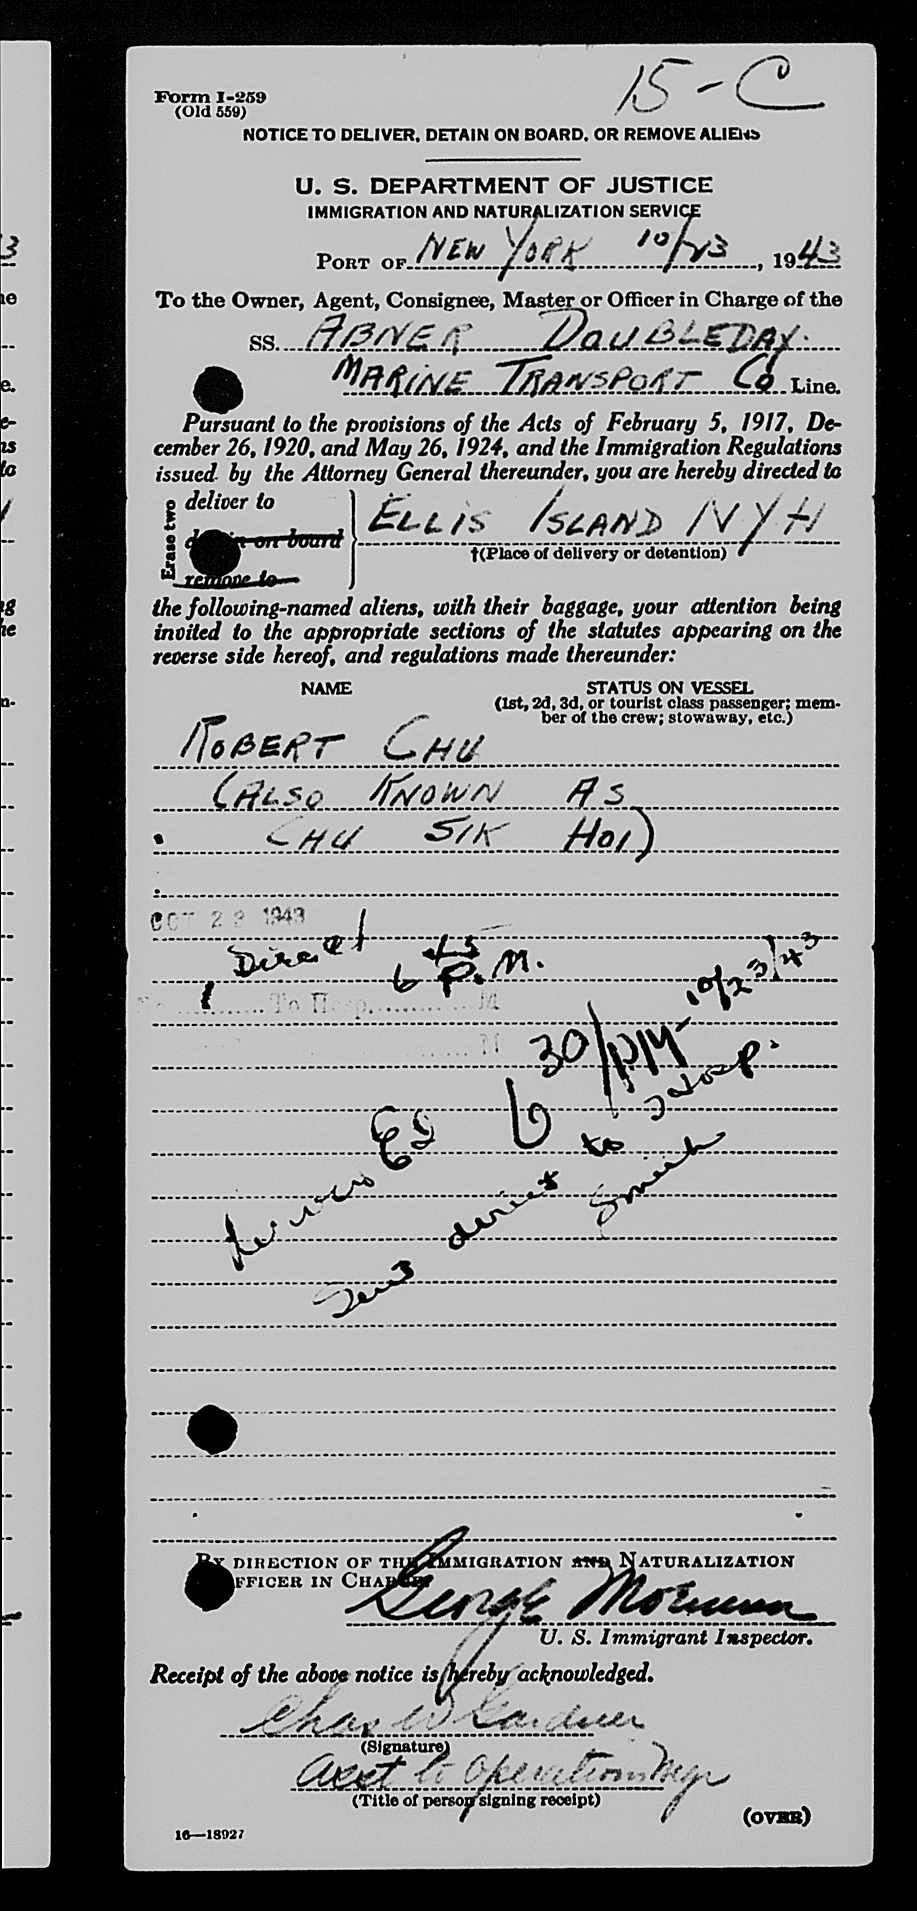 15-C
Form I-259
(Old 559)
NOTICE TO DELIVER, DETAIN ON BOARD, OR REMOVE ALIENS
U. S. DEPARTMENT OF JUSTICE
IMMIGRATION AND NATURALIZATION SERVICE
PORT OF NEW YORK 10/23, 1943
To the Owner, Agent, Consignee, Master or Officer in Charge of the
SS. ABNER DOUBLEDAY.
MARINE TRANSPORT Co Line.
Pursuant to the provisions of the Acts of February 5, 1917, De-
cember 26, 1920, and May 26, 1924, and the Immigration Regulations
issued by the Attorney General thereunder, you are hereby directed to
Erase two
deliver to
detain on board
remove to
ELLIS ISLAND NYH
†(Place of delivery or detention)
the following-named aliens, with their baggage, your attention being
invited to the appropriate sections of the statutes appearing on the
reverse side hereof, and regulations made thereunder:
NAME STATUS ON VESSEL
(1st, 2d, 3d, or tourist class passenger; mem-
ber of the crew; stowaway, etc.)
ROBERT CHU
(ALSO KNOWN AS
CHU SIK HOI)
OCT 23 1943
Direct 6 45 P.M.
1 To Hosp. M
6 30/PM - 10/23/43
Sent direct to Hosp.
Smith
BY DIRECTION OF THE IMMIGRATION AND NATURALIZATION
OFFICER IN CHARGE:
George
U. S. Immigrant Inspector.
Receipt of the above notice is hereby acknowledged.
Chas W Gardner
(Signature)
Asst to Operations Mgr
(Title of person signing receipt)
(OVER)
16—18927